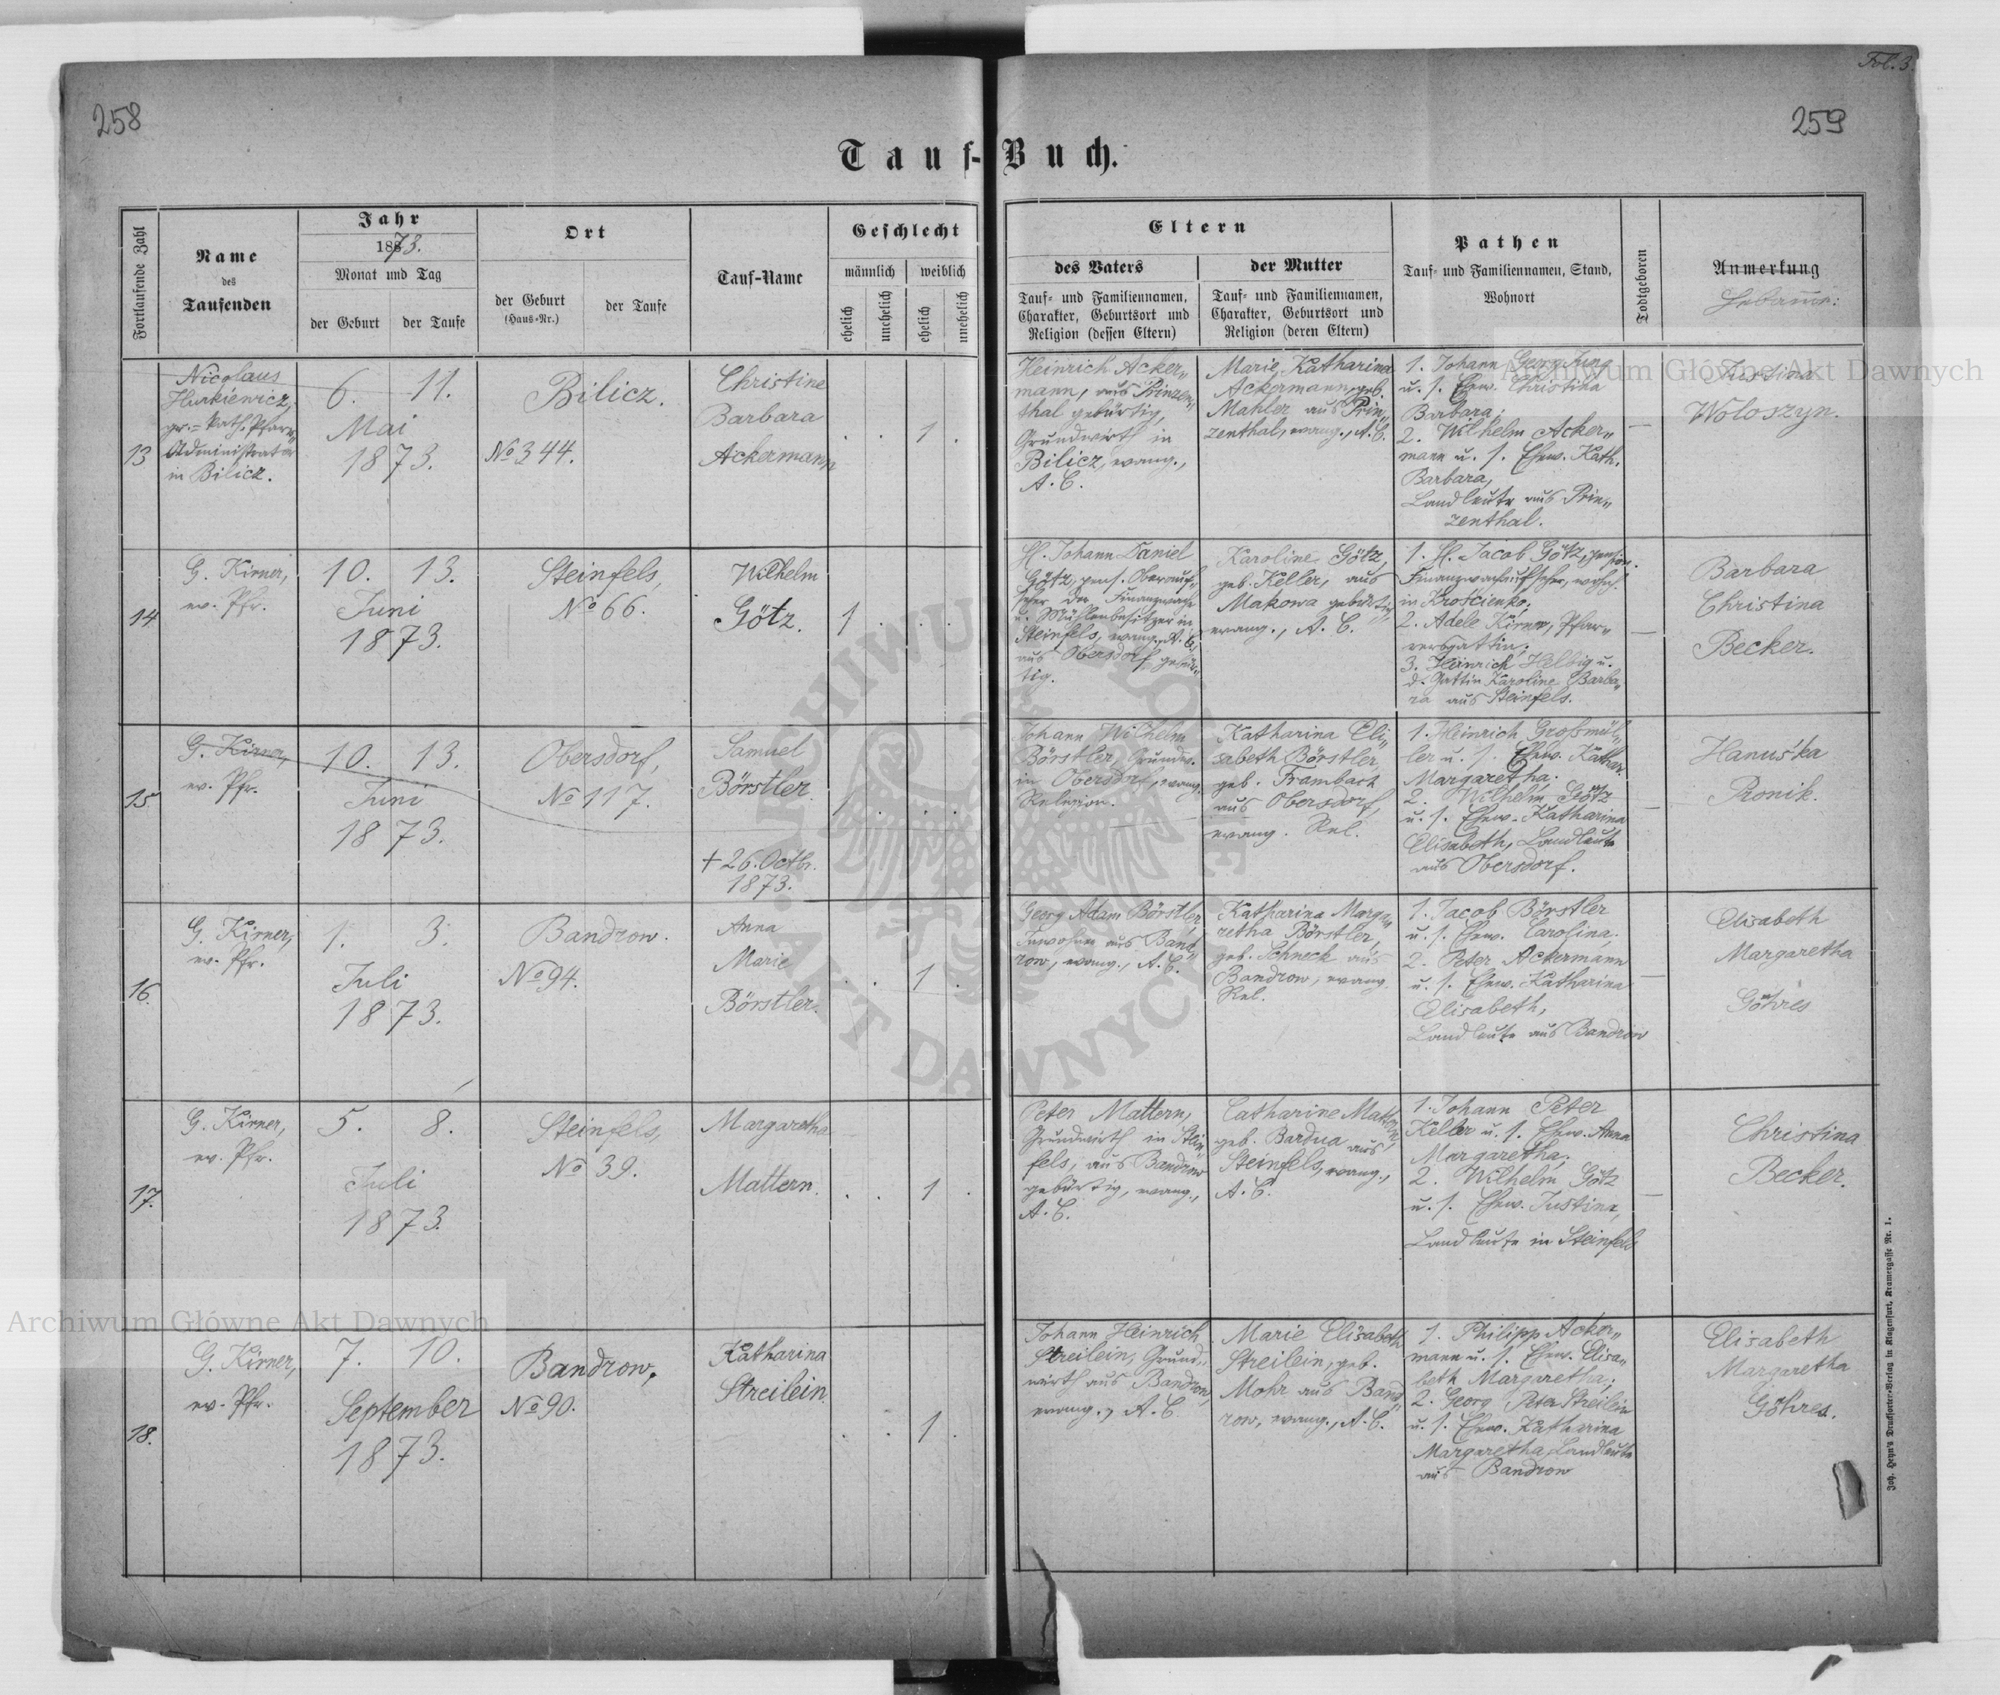 Fol. 3.
258
259
Tauf-Buch.
Fortlaufende Zahl
Name
des
Taufenden
Jahr
1873.
Monat und Tag
der Geburt
der Taufe
Ort
der Geburt
(Haus-Nr.)
der Taufe
Tauf-Name
Geschlecht
männlich
weiblich
ehelich
unehelich
ehelich
unehelich
Eltern
des Vaters
Tauf- und Familiennamen,
Charakter, Geburtsort und
Religion (dessen Eltern)
der Mutter
Tauf- und Familiennamen,
Charakter, Geburtsort und
Religion (deren Eltern)
Pathen
Tauf- und Familiennamen, Stand,
Wohnort
Todtgeboren
Anmerkung
Hebamme:
13
Nicolaus
Hurkiewicz,
gr.=kath. Pfarr=
Administrator
in Bilicz.
6. 11.
Mai
1873.
Bilicz.
No 344.
Christine
Barbara
Ackermann
. . 1 .
Heinrich Acker=
mann, aus Prinzen=
thal gebürtig,
Grundwirth in
Bilicz, evang.,
A. C.
Marie Katharina
Ackermann, geb.
Mahler aus Prin=
zenthal, evang., A. C.
1. Johann Georg Jung
u. s. Ehew. Christina
Barbara;
2. Wilhelm Acker=
mann u. s. Ehew. Kath.
Barbara,
Landleute aus Prin=
zenthal.
—
Woloszyn.
14
G. Kirner,
ev. Pfr.
10. 13.
Juni
1873.
Steinfels,
No 66.
Wilhelm
Götz.
1 . . .
H. Johann Daniel
Götz, pens. Oberauf=
seher der Finanzwache
u. Mühlenbesitzer in
Steinfels, evang., A. C.,
aus Obersdorf gebür=
tig.
Karoline Götz,
geb. Keller, aus
Makowa gebürtig,
evang., A. C.
1. H. Jacob Götz, pension.
Finanzwachaufseher, wohnh.
in Krościenko;
2. Adele Kirner, Pfar=
rersgattin;
3. Heinrich Helbig u.
d. Gattin Karoline Barba=
ra aus Steinfels.
—
Barbara
Christina
Becker.
15
G. Kirner,
ev. Pfr.
10. 13.
Juni
1873.
Obersdorf,
No 117.
Samuel
Börstler.
+ 26. Octbr.
1873.
1 . . .
Johann Wilhelm
Börstler, Grundw.
in Obersdorf, evang.
Religion.
Katharina Eli=
sabeth Börstler,
geb. Frambach
aus Obersdorf,
evang. Rel.
1. Heinrich Großmül=
ler u. s. Ehew. Kathar.
Margaretha;
2. Wilhelm Götz
u. s. Ehew. Katharina
Elisabeth, Landleute
aus Obersdorf.
—
Hanuśka
Pronik.
16.
G. Kirner,
ev. Pfr.
1. 3.
Juli
1873.
Bandrow.
No 94.
Anna
Marie
Börstler.
. . 1 .
Georg Adam Börstler,
Inwohner aus Band=
row, evang., A. C.
Katharina Marga=
retha Börstler,
geb. Schneck aus
Bandrow, evang.
Rel.
1. Jacob Börstler
u. s. Ehew. Carolina;
2. Peter Ackermann
u. s. Ehew. Katharina
Elisabeth,
Landleute aus Bandrow
Elisabeth
Margaretha
Göhres
17.
G. Kirner,
ev. Pfr.
5. 8.
Juli
1873.
Steinfels,
No 39.
Margaretha
Mattern.
. . 1 .
Peter Mattern,
Grundwirth in Stein=
fels, aus Bandrow
gebürtig, evang.,
A. C.
Catharine Mattern,
geb. Bardua aus
Steinfels, evang.,
A. C.
1. Johann Peter
Keller u. s. Ehew. Anna
Margaretha;
2. Wilhelm Götz
u. s. Ehew. Justina,
Landleute in Steinfels
—
Christina
Becker.
18.
G. Kirner,
ev. Pfr.
7. 10.
September
1873.
Bandrow,
No 90.
Katharina
Streilein.
. . 1 .
Johann Heinrich
Streilein, Grund=
wirth aus Bandrow,
evang., A. C.
Marie Elisabeth
Streilein, geb.
Mohr aus Band=
row, evang., A. C.
1. Philipp Acker=
mann u. s. Ehew. Elisa=
beth Margaretha;
2. Georg Peter Streilein
u. s. Ehew. Katharina
Margaretha, Landleute
aus Bandrow
Elisabeth
Margaretha
Göhres.
Joh. Heyn's Drucksorten-Verlag in Klagenfurt, Kramergasse Nr. 1.
Archiwum Główne Akt Dawnych
Archiwum Główne Akt Dawnych